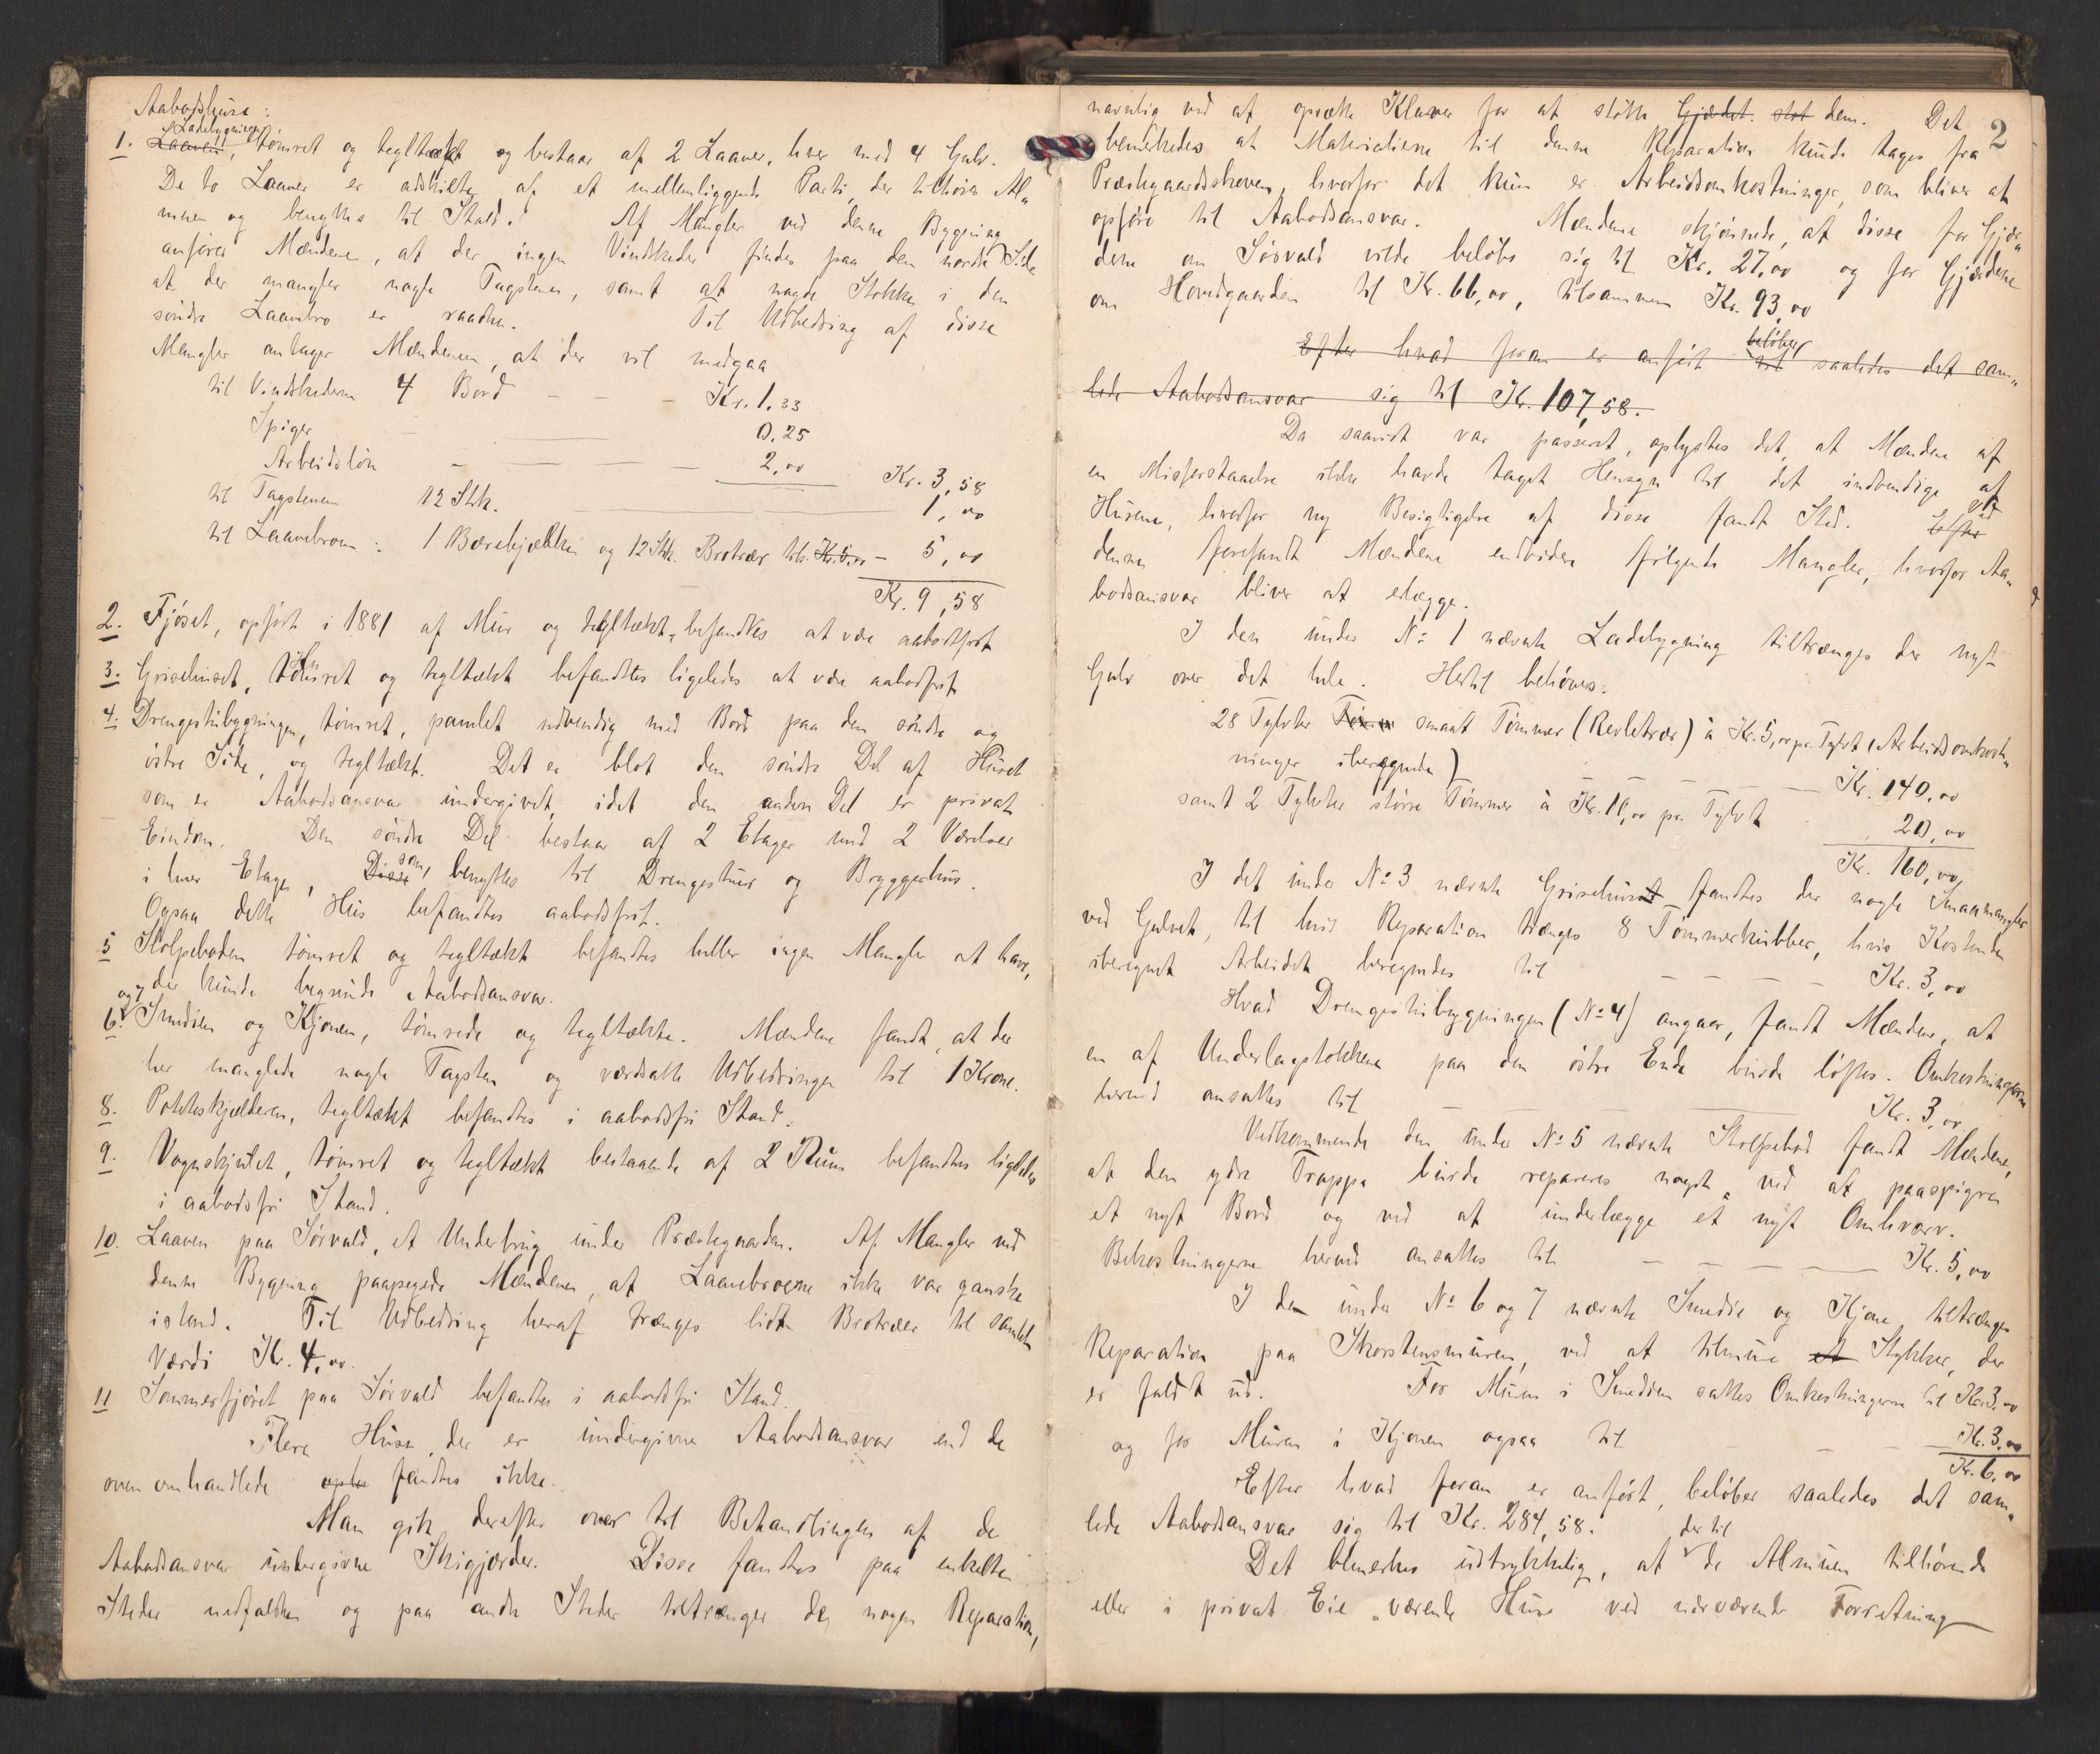 Aabodshuse:
Ladebygningen
1. Laaven, tømret og tegltækt og bestaar af 2 Laaver, hver med 4 Gulv.
De to Laaver er adskilte af et mellemliggende Parti, der tilhører Al„
muen og benyttes til Stald. Af Mangler ved denne Bygning
anfører Mændene, at der ingen Vindskeder findes paa den nordre Side
at der mangler nogle Tagstene, samt at nogle Stokke i den
søndre Laavebro er raadne. Til Udbedring af disse
Mangler antager Mændene, at der vil medgaa
til Vindskederne 4 Bord – – – Kr. 1,33
Spiger – – 0,25
Arbeidsløn – – – – – 2,00 Kr. 3,58
til Tagstenen 12 Stk. 1,00
til Laavebroen: 1 Bærebjælke og 12 Stk. Brotræer tils. Kr. 5,00 – 5,00
Kr. 9,58
2. Fjøset, opført i 1881 af Mur og tegltækt, befandtes at være aabodsfrit
3. Grisehuset, tømret og tegltækt befandtes ligeledes at være aabodsfrit
4. Drengestubygningen, tømret, panelet udvendig med Bord paa den søndre og
østre Side, og tegltækt. Det er blot den søndre Del af Huset
som er Aabodsansvar undergivet, idet den anden Del er privat
Eiendom. Den søndre Del bestaar af 2 Etager med 2 Værelser
i hver Etage, Disse som, benyttes til Drengestue og Bryggerhus.
Ogsaa dette Hus befandtes aabodsfrit.
5 Stolpeboden tømret og tegltækt befandtes heller ingen Mangler at have,
der kunde begrunde Aabodsansvar.
6. og 7 Smedien og Kjonen, tømrede og tegltækte. Mændene fandt, at der
her manglede nogle Tagsten og værdsatte Udbedringen til 1 Krone.
8. Potteskjælderen, tegltækt befandtes i aabodsfri Stand.
9. Vognskjulet, tømret og tegltækt bestaaende af 2 Rum befandtes ligeledes
i aabodsfri Stand.
10. Laaven paa Sørvald, et Underbrug under Præstegaarden. Af Mangler ved
denne Bygning paapegede Mændene, at Laavebroerne ikke var ganske
istand. Til Udbedring heraf trænges lidt Brotræer til samlet
Værdi Kr. 4,00.
11 Sommerfjøset paa Sørvald befandtes i aabodsfri Stand.
Flere Huse, der er undergivne Aabodsansvar end de
ovenomhandlede fandtes ikke.
Man gik derefter over til Behandlingen af de
Aabodsansvar undergivne Skigjærder. Disse fandtes paa enkelte
Steder nedfaldne og paa andre Steder tiltrænger de nogen Reparation,
2
navnlig ved at opsætte Klaver for at støtte Gjærdet. dem. Det
bemærkedes at Materialierne til denne Reparation kunde tages fra
Præstegaardsskoven, hvorfor det kun er Arbeidsomkostninger, som bliver at
opføre til Aabodsansvar. Mændene skjønnede, at disse for Gjær„
derne om Sørvald vilde beløbe sig til Kr. 27,00 og for Gjærderne
om Hovedgaarden til Kr. 66,00, tilsammen Kr. 93,00
Efter hvad foran er anført beløber saaledes det sam„
lede Aabodsansvar sig til Kr. 107,58.
Da saavidt var passeret, oplystes det, at Mændene af
en Misforstaaelse ikke havde taget Hensyn til det indvendige af
Husene, hvorfor ny Besigtigelse af disse fandt Sted. Efter Ved
denne forefandt Mændene endvidere følgende Mangler, hvorfor Aa„
bodsansvar bliver at erlægge.
I den under No 1 nævnte Ladebygning tiltrænges der nyt
Gulv over det hele. Hertil behøves:
28 Tylvter smaat Tømmer (Revletræer) à Kr. 5,00 pr. Tylvt (Arbeidsomkost„
ninger iberegnede) – – – – Kr. 140,00
samt 2 Tylvter større Tømmer à Kr. 10,00 pr. Tylvt 20,00
Kr. 160,00
I det under No 3 nævnte Grisehus fandtes der nogle Smaamangler
ved Gulvet, til hvis Reparation trænges 8 Tømmerkubber, hvis Kostende
iberegnet Arbeidet beregnedes til – – – – Kr. 3,00
Hvad Drengestubygningen (No 4) angaar, fandt Mændene, at
en af Underlagsstokkene paa den østre Ende burde løftes. Omkostningerne
herved ansattes til – – – Kr. 3,00
Vedkommende den under No 5 nævnte Stolpebod fandt Mændene,
at den ydre Trappe burde repareres noget, ved at paaspigre
et nyt Bord og ved at underlægge et nyt Omhvarv.
Bekostningerne herved ansattes til – – – – Kr. 5,00
I den under No 6 og 7 nævnte Smedie og Kjone tiltrænges
Reparation paa Skorstensmuren, ved at tilmure et Stykker, der
er faldt ud. For Muren i Smedien sattes Omkostningerne til Kr. 3,00
og for Muren i Kjonen ogsaa til – – Kr. 3,00
Kr. 6,00
Efter hvad foran er anført, beløber saaledes det sam„
lede Aabodsansvar sig til Kr. 284,58.
Det bemerkes udtrykkelig, at der til de Almuen tilhørende
eller i privat Eie værende Huse ved nærværende Forretning